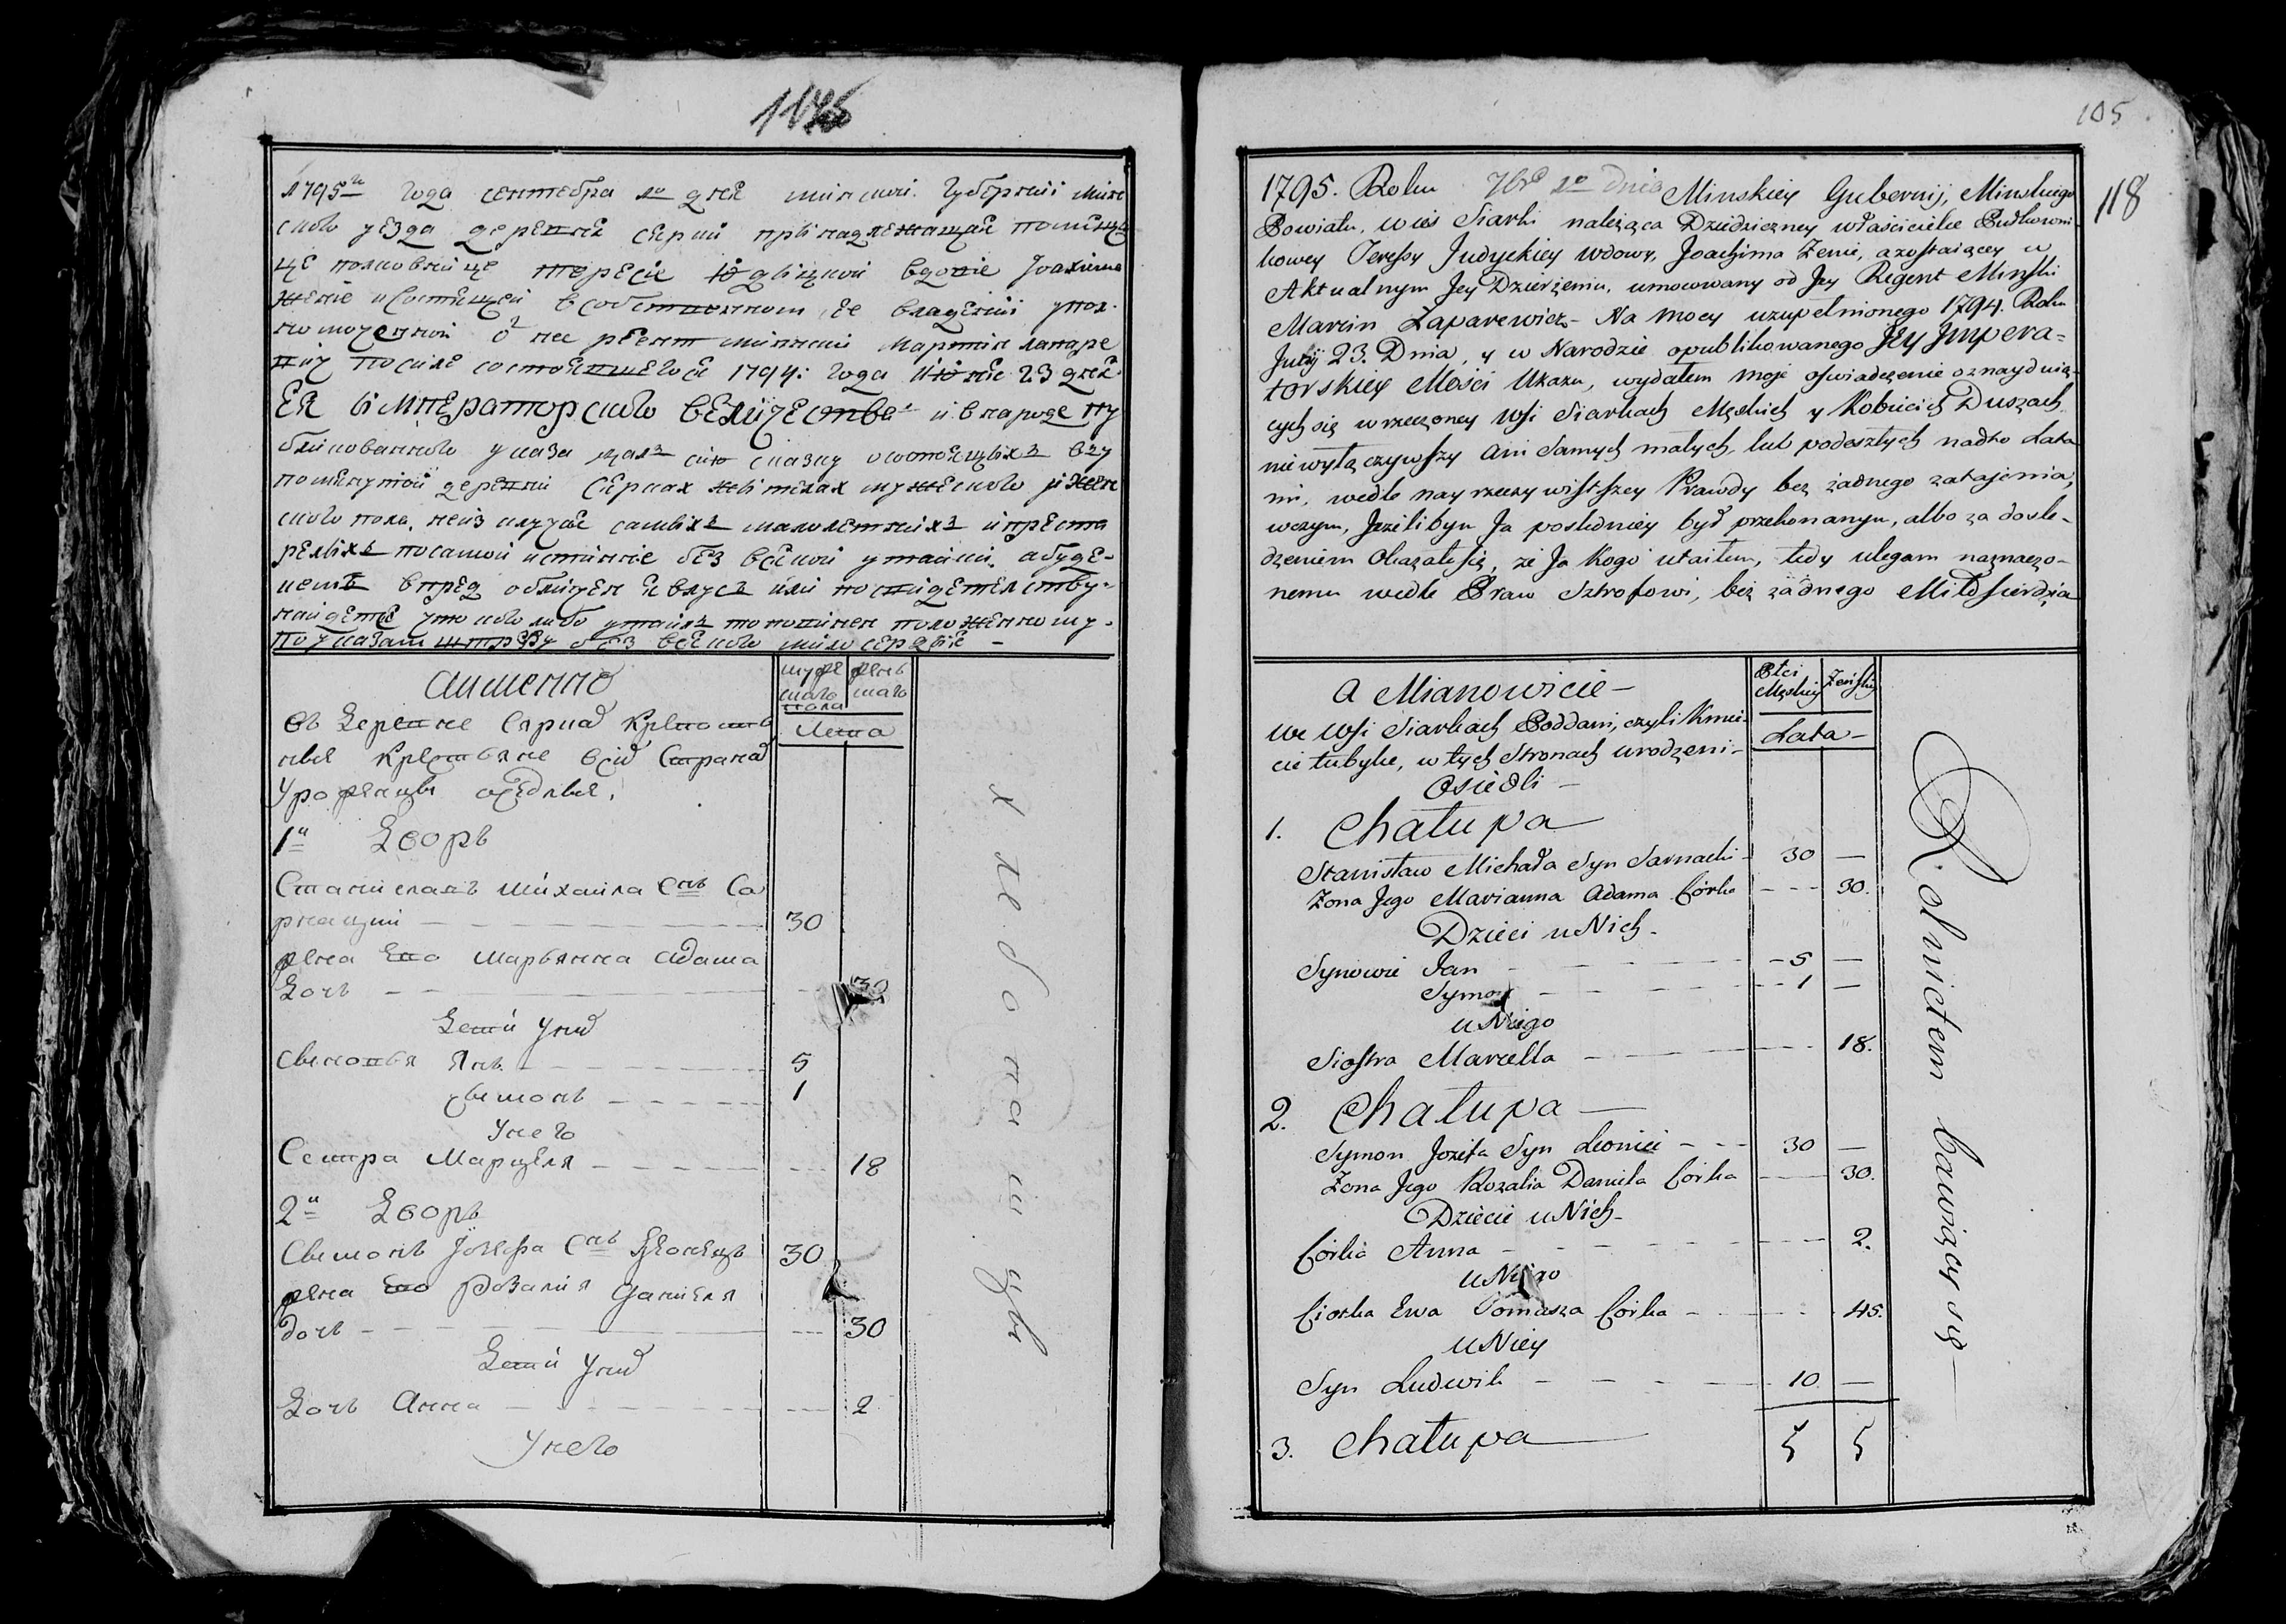 1795го года сентебра 10 дня минской губернии мин
ского уезда деревня серки принадлежащая помещи
це полковнице тересе юдицкой вдове Іоахима
жене и состоящей в собственном ее владении упол
номоченной от нее регент минский мартин лапаре
вич по силе состоявшегося 1794: года июня 23 дня
ЕЯ ИМПЕРАТОРСКОГО ВЕЛИЧЕСТВА и в народе пу
бликованного указа дал сию сказку о состоящих в вы
помянутой деревни серках жителях мужеского и жен
ского пола, не изключая самых малолетних и преста
релых по самой истинне без всякой утайки, а буде
чемъ впред обличен явлусь или по свидетелству
найдетца что кого либо утаилъ то повинен положенному
по указам штрафу без всякого милосердие –
а именно
мужеска
го
пола
женъ
скаго
лета
Въ Деревне Сяркахъ крепост
ные крестьяне
Уроженцы оседлые.
1й Дворъ
Станиславъ Михаила Снъ Са
рнацки – 30
жена Его Марьянна Адама
Дочь – 30
Дети у нихъ
Сыновья Янъ – 5
Сымонъ – 1
У него
Сестра Марцеля – 18
2й Дворъ
Сымонъ Іозефа Снъ 30
жена Его Розалия Даниеля
дочь – 30
Дети у нихъ
Дочь Анна – 2
У него
105
118
1795. Roku 7bra 10 dnia Minskiey Gubernij, Minskiego
Powiatu, wieś Siarki należąca Dziedziczney właścicielce Pułkowni-
kowey Teressy Judyckiey wdowy, Joachima Żenie, a zostaiącey w
Aktualnym Jey Dzierżeniu, umocowany od Jey Regent Minski
Marcin Łaparewicz – Na mocy uzupełnionego 1794. Roku
Junij 23. Dnia, y w Narodzie opublikowanego Jey Impera-
torskiey Mości Ukazu, wydałem moje oświadczenie o znayduią-
cych się w rzeczoney Wsi Siarkach Męskich y Kobiecich Duszach
nie wyłączywszy ani Samych małych, lub podeszłych nadto Lata
mi, wedle nayrzeczywistszey Prawdy bez żadnego zatajenia,
w czym, Jeżelibym Ja poslidniey był przekonanym, albo za dosle-
dzeniem Okazałosię, że Ja Kogo utaiłem, tedy ulegam naznaczo-
nemu wedle Praw Sztrofowi, beż żadnego Miłosierdzia
a Mianowicie –
Płci
Męskiey Żeńskiey
Lata –
we Wsi Siarkach Poddani, czyli Kmie-
cie tubylce, w tych Stronach urodzeni –
Osiedli –
1. Chałupa
Stanisław Michała Syn Sarnacki – 30 –
Żona Jego Marianna Adama Córka – 30.
Dzieci u Nich –
Synowie Jan – 5 –
Symon – 1 –
u Niego
Siostra Marcella – 18.
2. Chałupa –
Symon Jozefa Syn 30 –
Żona Jego Rozalia Daniela Córka – 30.
Dziecie u Nich –
Córka Anna – 2.
u Niego
Ciotka Ewa Tomasza Córka – 45.
u Niey
Syn Ludwik – 10 –
5 5
3. Chałupa
Rolnictem bawiący się –